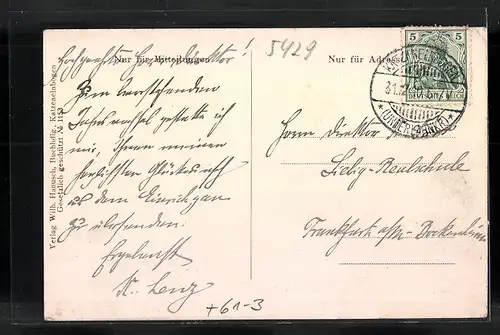 5429
Nur für Mitteilungen
Nur für Adresse
Hochgeehrter Herr Direktor!
Zum bevorstehenden
Jahreswechsel gestatte ich
mir, Ihnen meinen
herzlichsten Glückwunsch
aus dem Einrichgau
zu übersenden.
Ergebenst
K. Lenz
+61-3
Verlag Wilh. Hanusch, Buchhdlg., Katzenelnbogen
Gesetzlich geschützt №
5 5
DEUTSCHES REICH
KATZENELNBOGEN
31.12.
Herrn Direktor
Liebig-Realschule
Frankfurt a/M - Bockenheim